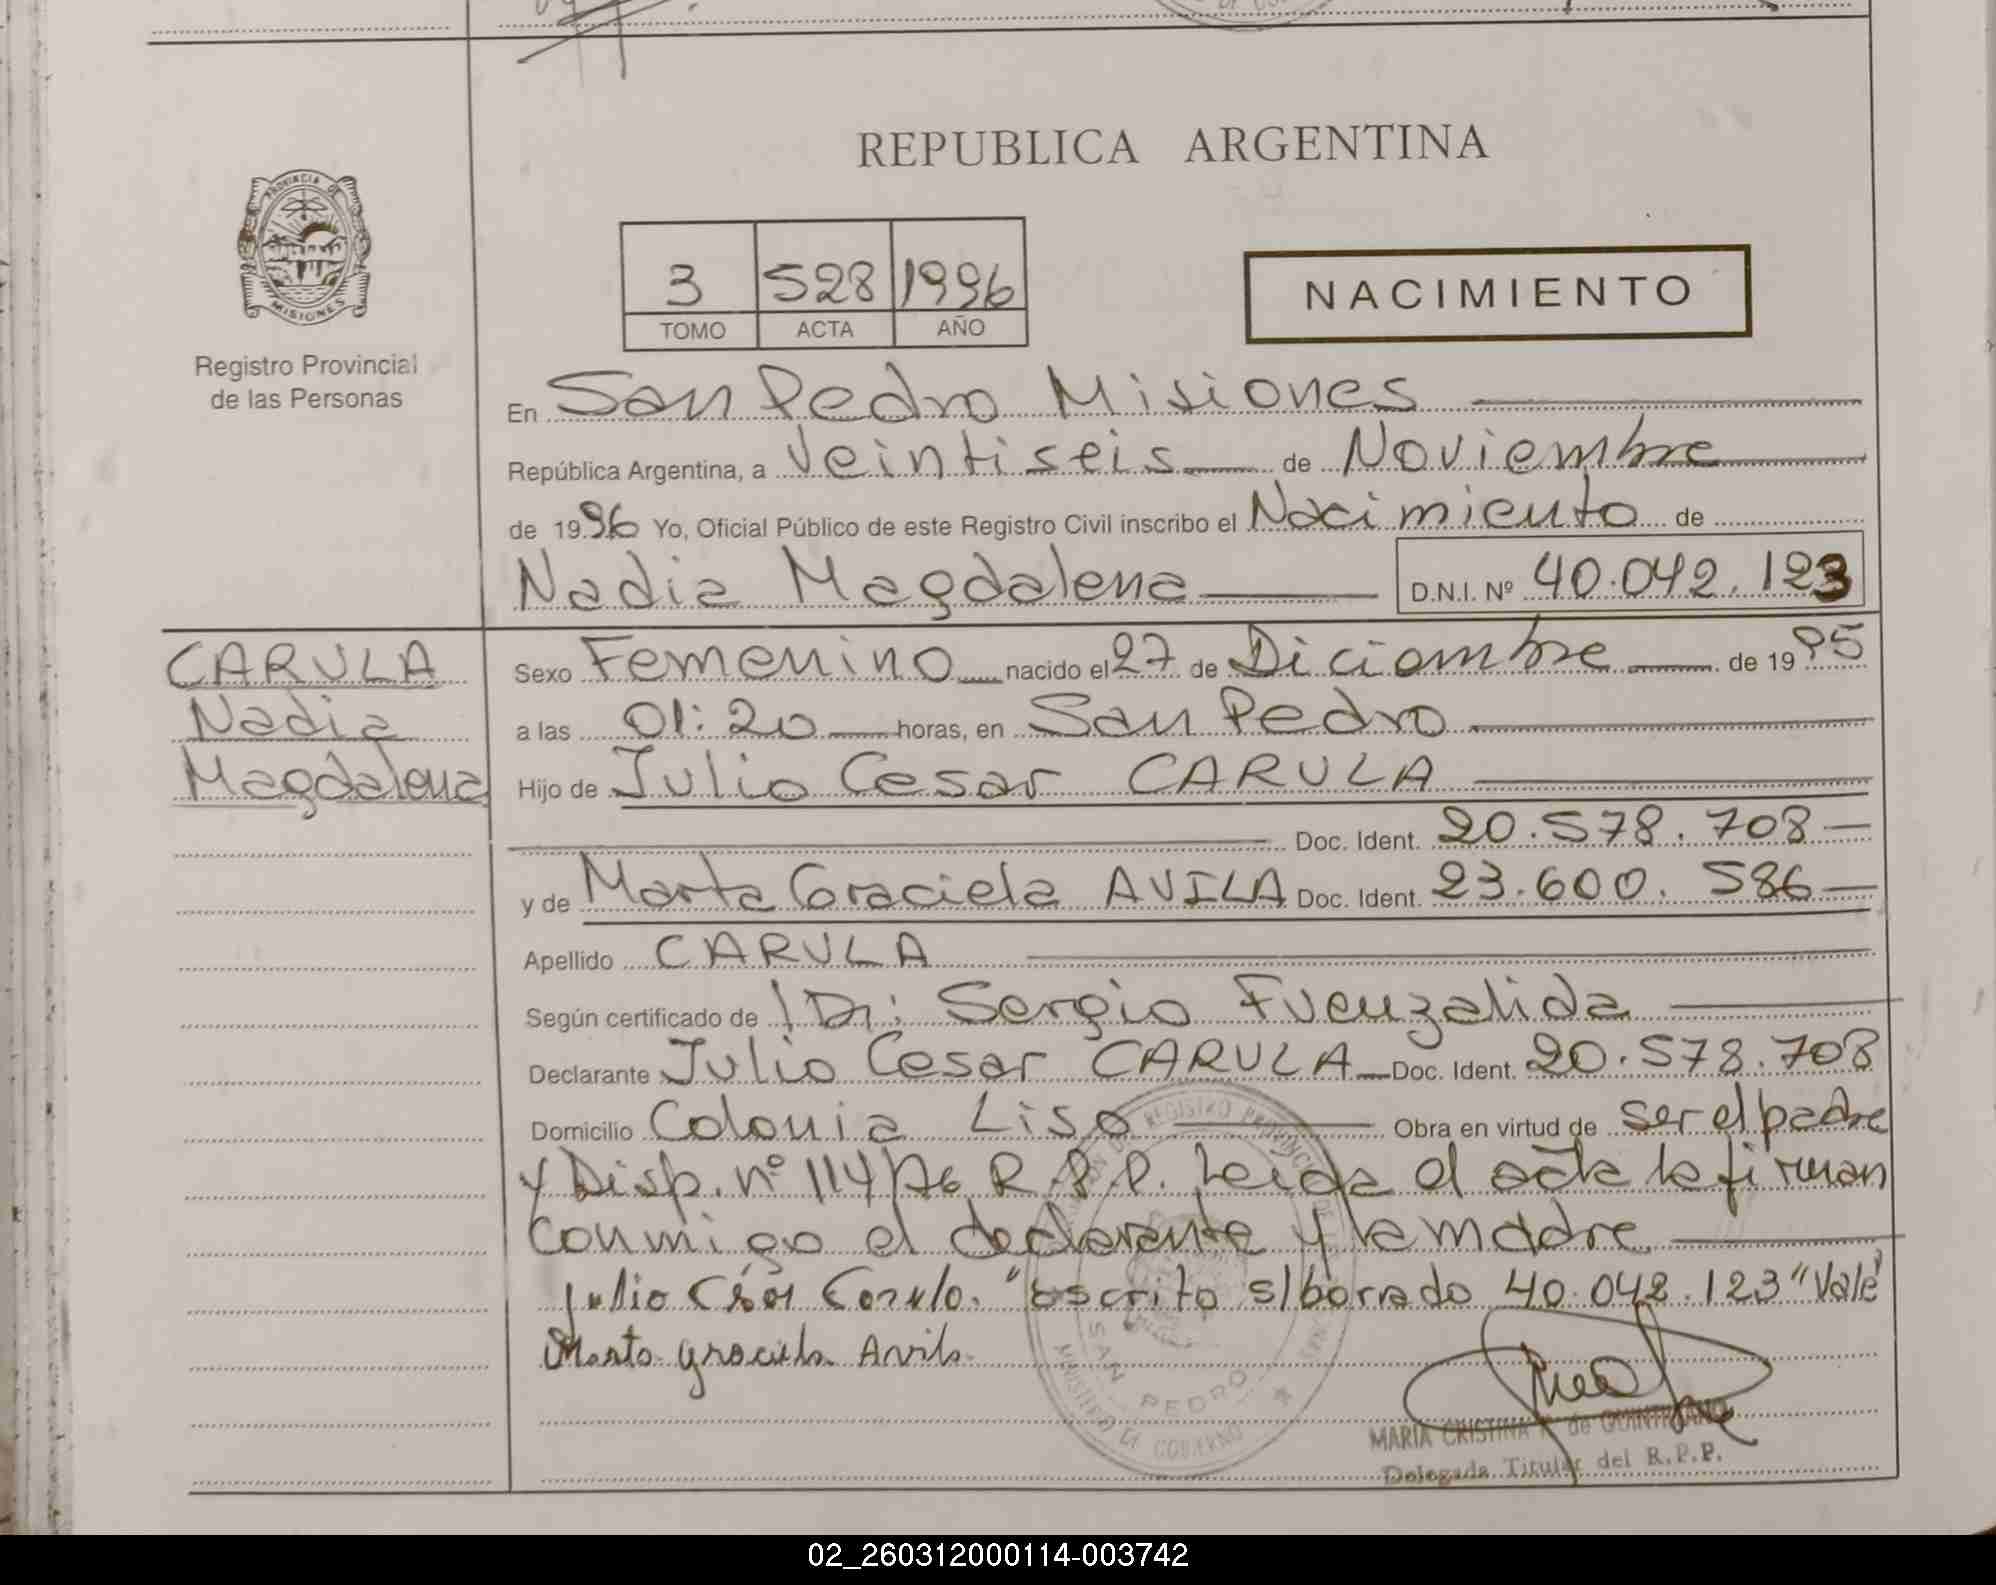 REPUBLICA ARGENTINA
PROVINCIA DE
MISIONES
Registro Provincial
de las Personas
3 528 1996
TOMO ACTA AÑO
NACIMIENTO
En San Pedro Misiones
República Argentina, a veintiseis de Noviembre
de 1996 Yo, Oficial Público de este Registro Civil inscribo el Nacimiento de
Nadia Magdalena D.N.I. Nº 40.042.123
CARULA
Nadia
Magdalena
Sexo Femenino nacido el 27 de Diciembre de 1995
a las 01:20 horas, en San Pedro
Hijo de Julio Cesar CARULA
Doc. Ident. 20.578.708
y de Marta Graciela AVILA Doc. Ident. 23.600.586
Apellido CARULA
Según certificado de Dr: Sergio Fuenzalida
Declarante Julio Cesar CARULA Doc. Ident. 20.578.708
Domicilio Colonia Liso Obra en virtud de ser el padre
y Disp. nº 114/96 R.P.P. Leida el acta la firman
conmigo el declarante y la madre
Julio Cesar Carula. "escrito s/borrado 40.042.123" Vale
Marta Graciela Avila
SAN PEDRO
MINISTERIO DE GOBIERNO
MARIA CRISTINA de
Delegada Titular del R.P.P.
02_260312000114-003742